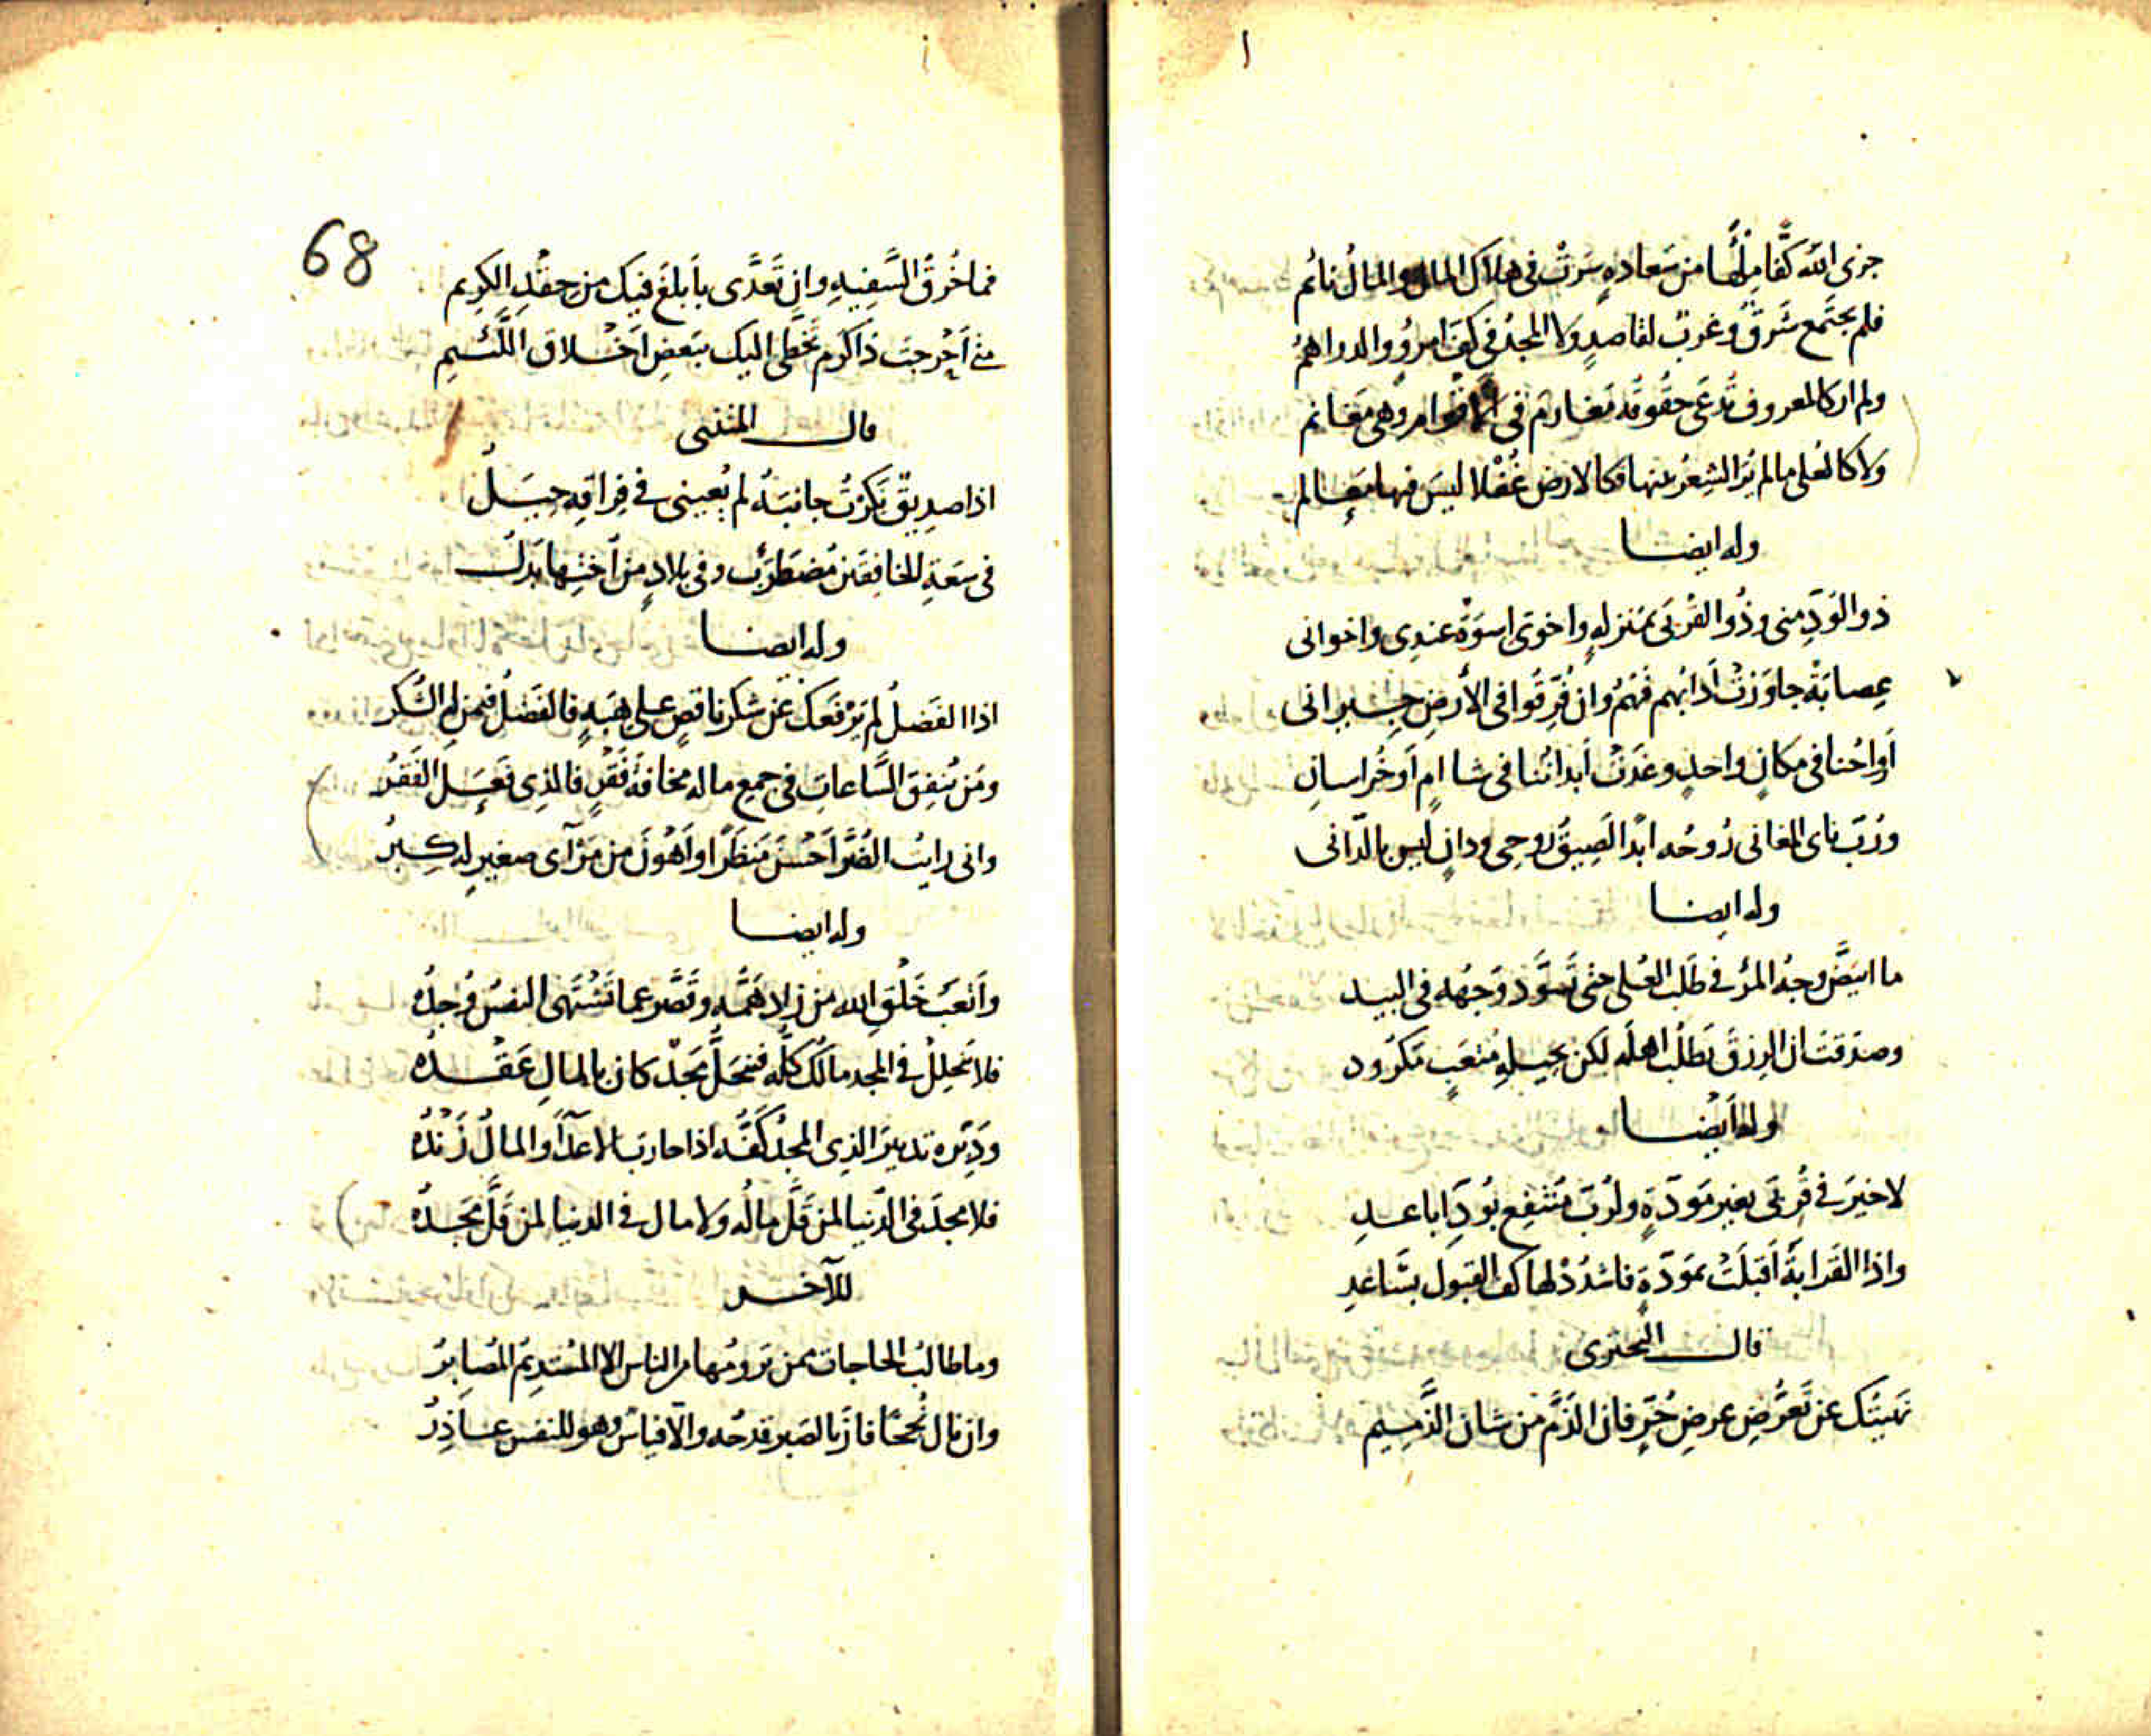 جزى الله كفا ملئها من سعادة سرت في هلاك المال والمال نائم
فلم يجتمع شرق وغرب لقاصد ولا المجد في كف امرؤ والدراهم
ولم ار كالمعروف تدعى حقوقه مغارم في الاقوام وهي مغانم
ولا كالعلى مالم ير الشعر بينها فكالارض غفلا ليس فيها معالم
وله ايضا
ذو الود منى وذو القربى بمنزلة واخوتى اسوة عندى واخوانى
عصابة جاورت آدابهم فهم وان فرقوا في الأرض جيرانى
أرواحنا في مكان واحد وغدت أبداننا في شاام أو خراسان
ورب ناى المغانى روحه ابدا لصيق روحى ودان ليس بالدانى
وله ايضا
ما ابيض وجه المرء في طلب العلى حتى تسود وجهه في البيد
وصدقت ان الرزق يطلب اهله لكن بحيلة متعب مكدود
وله أيضا
لا خير في قربى بغير مودة ولرب منتفع بود اباعد
واذا القرابة أقبلت بمودة فاشدد لها كف القبول بساعد
قال البحترى
نهيتك عن تعرض عرض حر فان الذم من شان الذميم
68
فما خرق السفيه وان تعدى بأبلغ فيك من حقد الكريم
متى أحرجت ذا كرم تخطى اليك ببعض اخلاق اللئيم
قال المتنبى
اذا صديق نكرت جانبه لم تعينى في فراقه حيل
في سعة الخافقين مضطرب وفي بلاد من اختها بدل
وله ايضا
اذا الفضل لم يرفعك عن شكر ناقص على هبة فالفضل فيمن له الشكر
ومن ينفق الساعات في جمع ماله مخافة فقر فالذى فعل الفقر
وانى رايت الضر أحسن منظرا وأهون من مرآى صغير له كبر
وله ايضا
وأتعب خلق الله من زاد همه وقصر عما تشتهى النفس وجده
فلا تحلل في المجد مالك كله فينحل مجد كان بالمال عقده
ودبره تدبير الذى المجد كفه اذا حارب الاعدآ والمال زنده
فلا مجد في الدنيا لمن قل ماله ولا مال في الدنيا لمن قل مجده
للآخر
وما طالب الحاجات ممن يرومها من الناس الا المستديم المصابر
وان نال نجحا فاز بالصبر قدحه والا فياس وهو للنفس عاذر